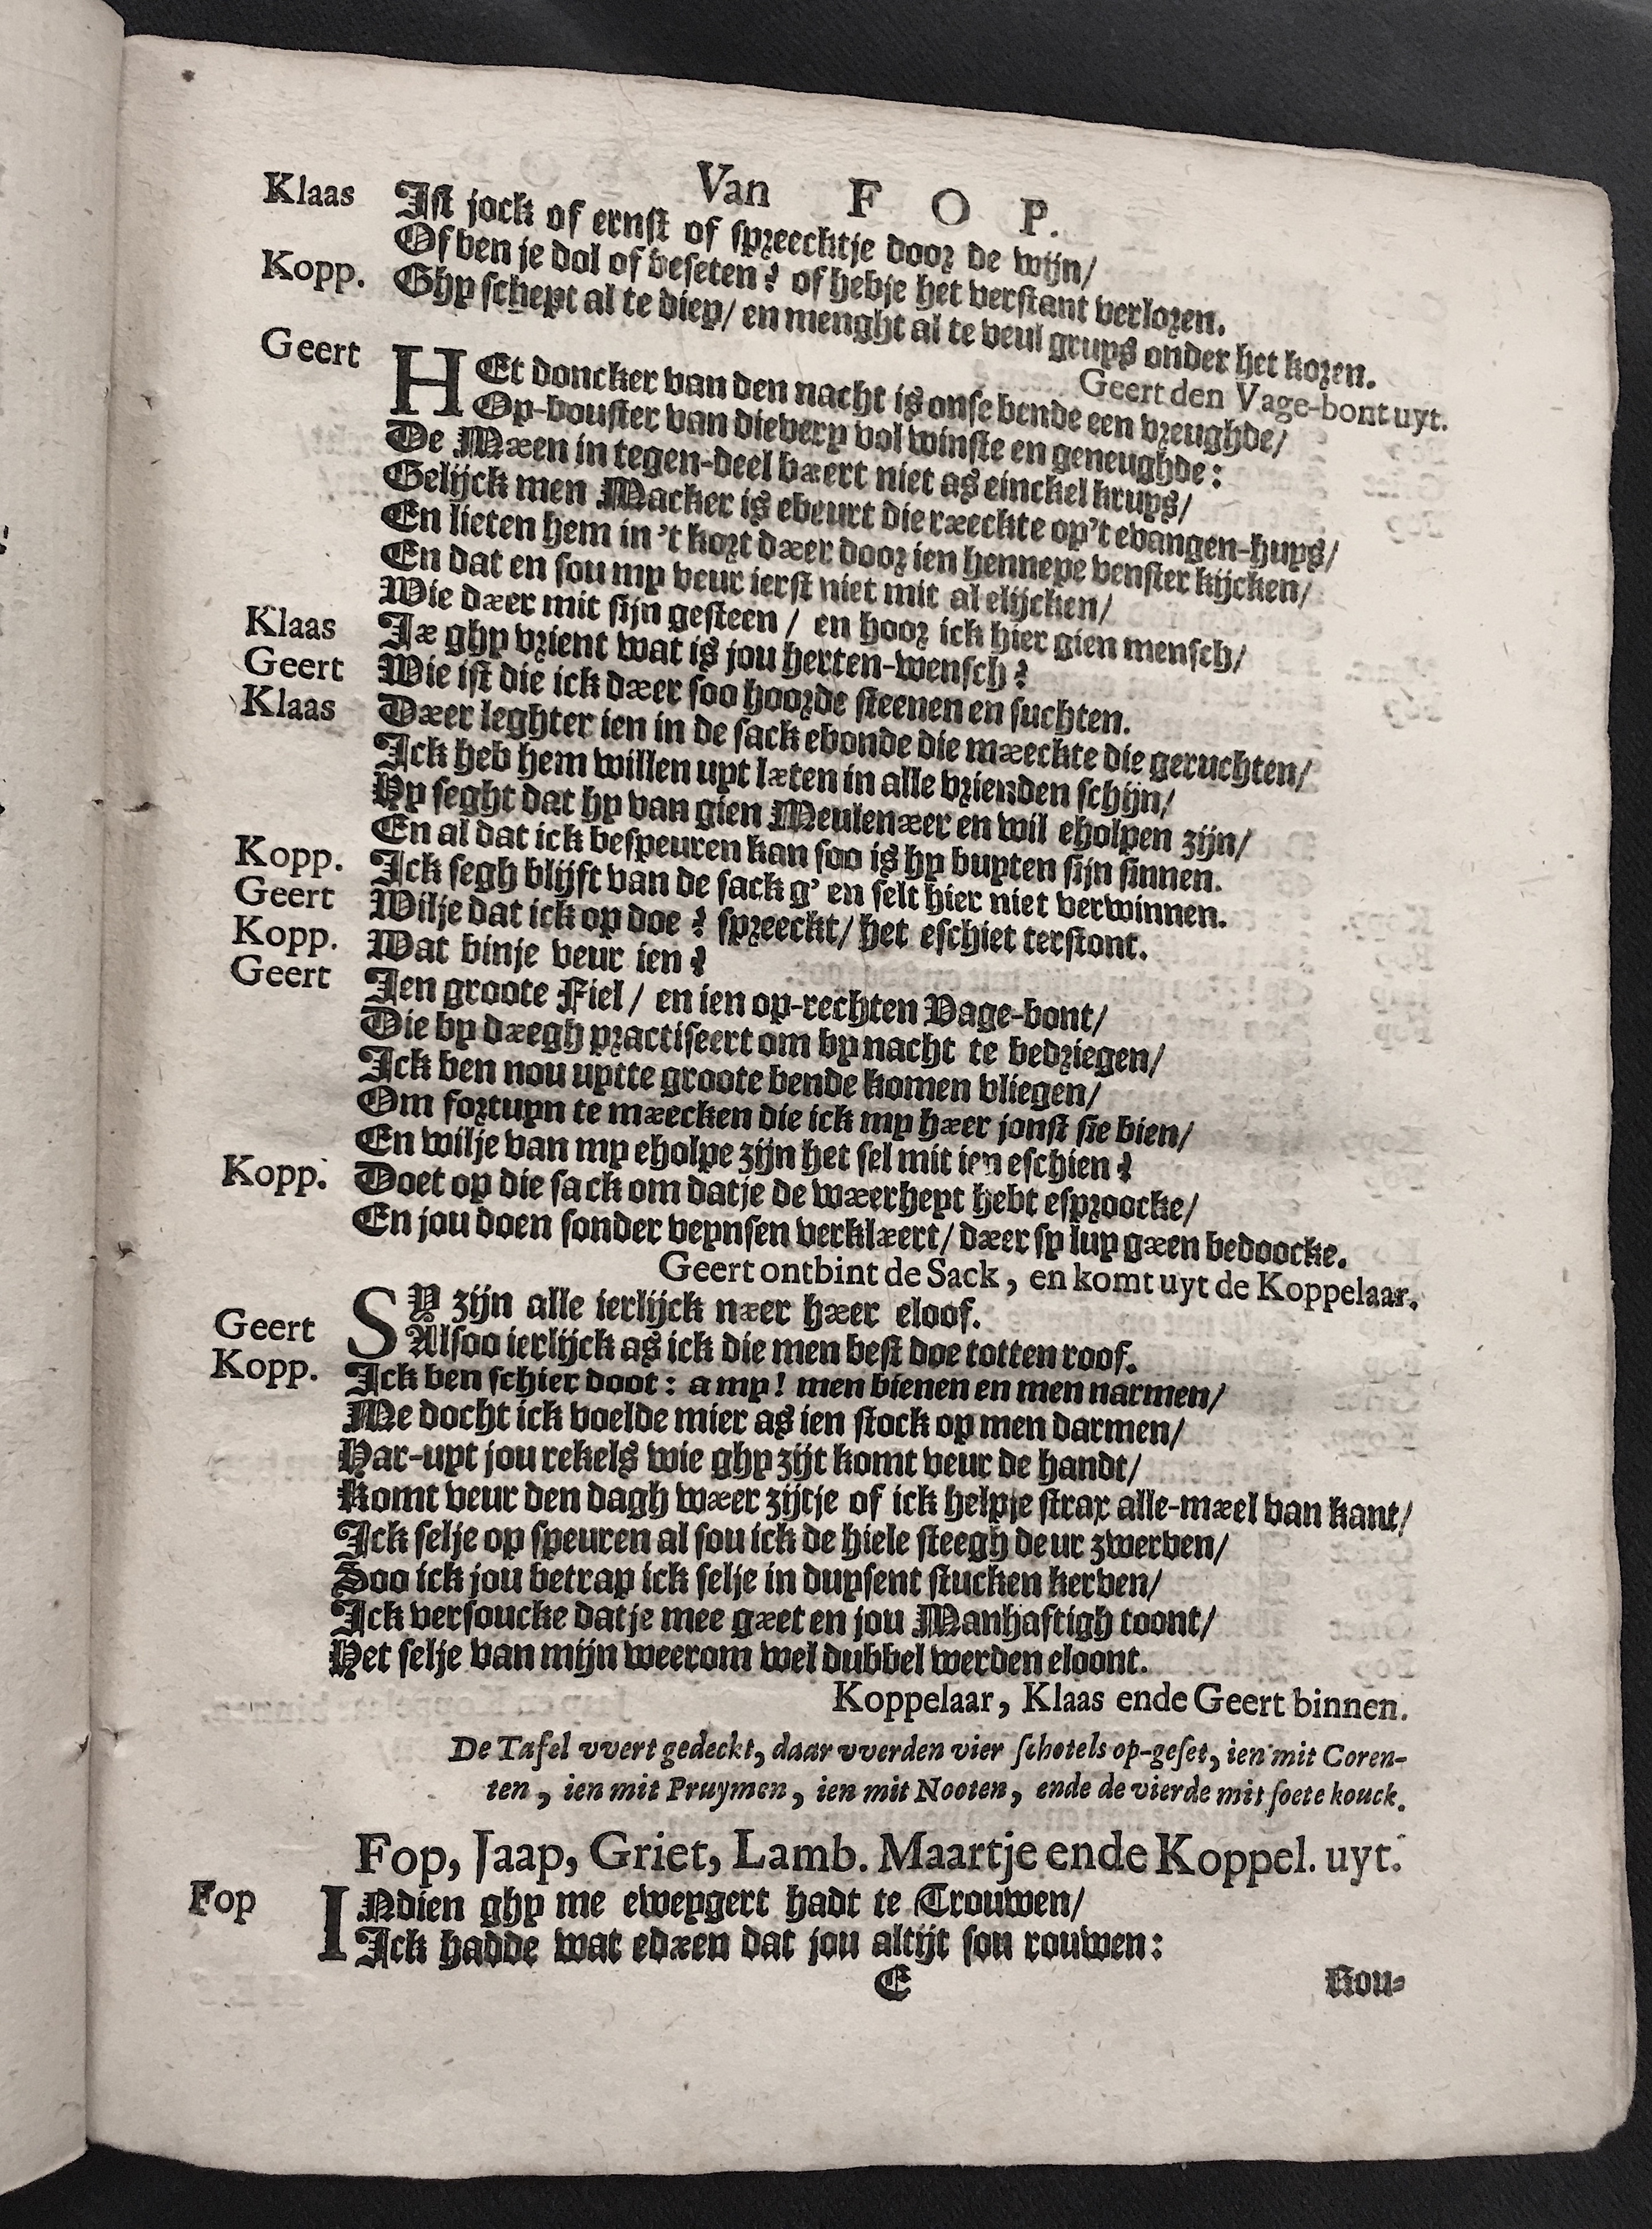 Van F O P.
Klaas Ist jock of ernst of spreecktje door de wijn/
Of ben je dol of beseten? of hebje het verstant verloren.
Kopp. Ghy schept al te diep/ en menght al te veul gruys onder het koren.
Geert den Vage-bont uyt.
Geert HEt doncker van den nacht is onse bende een vreughde/
Op-vouster van dievery vol winste en geneughde:
De Mæen in tegen-deel bæert niet as einckel kruys/
Gelijck men Macker is ebeurt die ræeckte op't evangen-huys/
En lieten hem in 't kort dæer door ien hennepe venster kijcken/
En dat en sou my veur ierst niet mit al elijcken/
Wie dæer mit sijn gesteen / en hoor ick hier gien mensch/
Klaas Jæ ghy vrient wat is jou herten-wensch?
Geert Wie ist die ick dæer soo hoorde steenen en suchten.
Klaas Dæer leghter ien in de sack ebonde die mæeckte die geruchten/
Ick heb hem willen uyt læten in alle vrienden schijn/
Hy seght dat hy van gien Meulenæer en wil eholpen zijn/
En al dat ick bespeuren kan soo is hy buyten sijn sinnen.
Kopp. Ick segh blijft van de sack g' en selt hier niet verwinnen.
Geert Wilje dat ick op doe? spreeckt/ het eschiet terstont.
Kopp. Wat binje veur ien?
Geert Ien groote Fiel/ en ien op-rechten Vage-bont/
Die by dægh practiseert om by nacht te bedriegen/
Ick ben nou uytte groote bende komen vliegen/
Om fortuyn te mæecken die ick my hæer jonst sie bien/
En wilje van my eholpe zijn het sel mit ien eschien?
Kopp. Doet op die sack om datje de wæerheyt hebt esproocke/
En jou doen sonder veynsen verklæert/ dæer sy luy gæen bedoocke.
Geert ontbint de Sack, en komt uyt de Koppelaar.
SY zijn alle ierlijck næer hæer eloof.
Geert Alsoo ierlijck as ick die men best doe totten roof.
Kopp. Ick ben schier doot: a my! men bienen en men narmen/
Me docht ick voelde mier as ien stock op men darmen/
Har-uyt jou rekels wie ghy zijt komt veur de handt/
Komt veur den dagh wæer zijtje of ick helpje strax alle-mæel van kant/
Ick selje op speuren al sou ick de hiele steegh deur zwerven/
Soo ick jou betrap ick selje in duysent stucken kerven/
Ick versoucke datje mee gæet en jou Manhaftigh toont/
Het selje van mijn weerom wel dubbel werden eloont.
Koppelaar, Klaas ende Geert binnen.
De Tafel vvert gedeckt, daar vverden vier schotels op-geset, ien mit Coren-
ten, ien mit Pruymen, ien mit Nooten, ende de vierde mit soete kouck.
Fop, Jaap, Griet, Lamb. Maartje ende Koppel. uyt.
Fop INdien ghy me eweygert hadt te Trouwen/
Ick hadde wat edæen dat jou altijt sou rouwen:
E Rou-